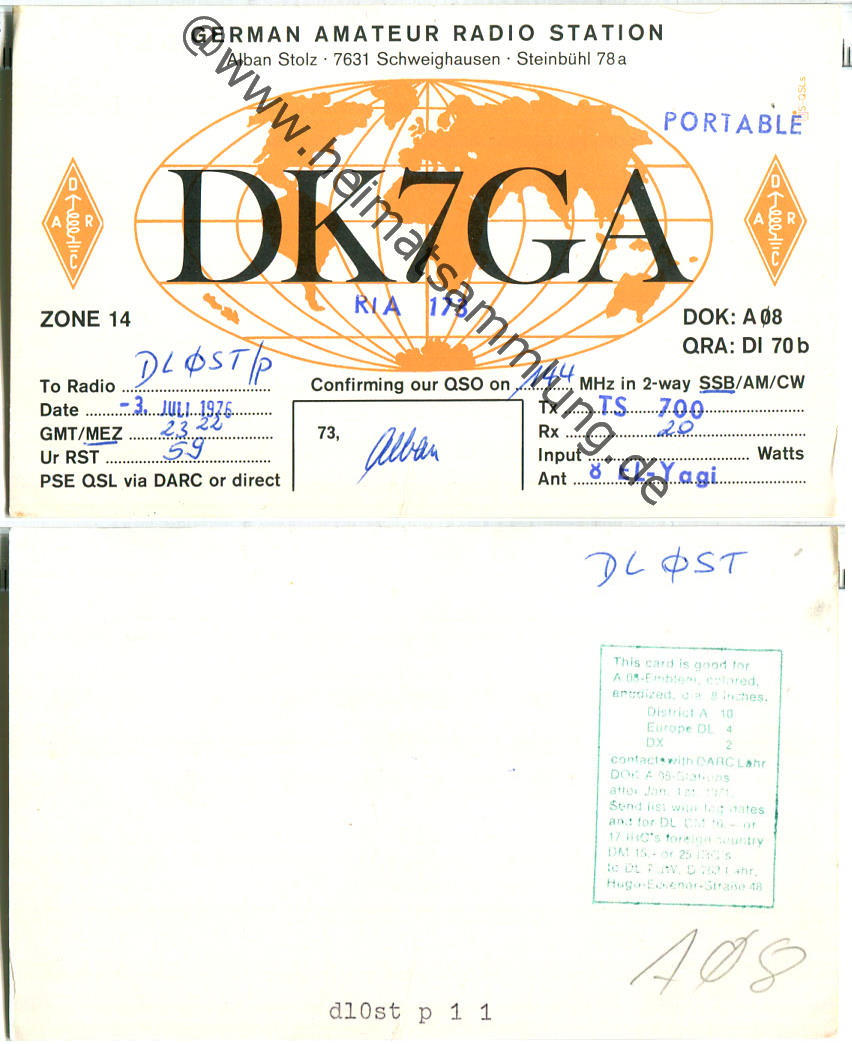 GERMAN AMATEUR RADIO STATION
Alban Stolz · 7631 Schweighausen · Steinbühl 78a
@www.heimatsammlung.de
PORTABLE
DARC
DK7GA
DARC
RIA 173
ZONE 14
DOK: AØ8
QRA: DI 70b
To Radio DLØST/p
Confirming our QSO on 144 MHz in 2-way SSB/AM/CW
Date -3. JULI 1976
Tx TS 700
GMT/MEZ 23 22
73,
Alban
Rx 20
Ur RST 59
Input Watts
PSE QSL via DARC or direct
Ant 8 EL-Yagi
DLØST
This card is good for
A 08-Emblem, colored,
anodized, dia. 8 inches.
District A 10
Europe DL 4
DX 2
contact with DARC Lahr
DOK A 08-Stations
after Jan. 1st, 1971.
Send list with log dates
and for DL DM 16,- or
17 IRC's foreign country
DM 15,- or 25 IRC's
to DL Lahr,
Hugo-Eckener-Straße 48
AØ8
dl0st p 1 1